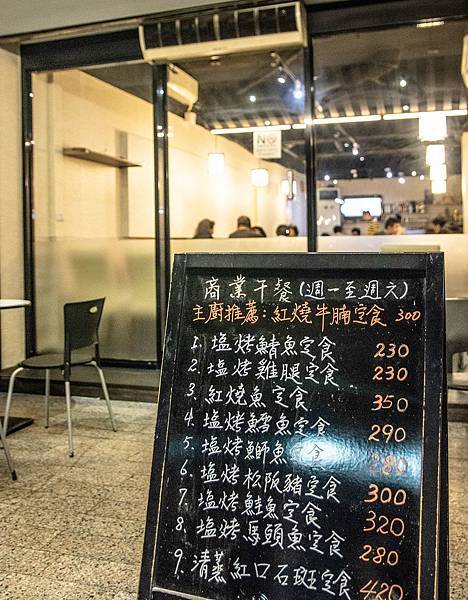 商業午餐(週一至週六)
主廚推薦:紅燒牛腩定食 300
1. 塩烤鯖魚定食 230
2. 塩烤雞腿定食 230
3. 紅燒魚定食 350
4. 塩烤鱈魚定食 290
5. 塩烤鰤魚定食 280
6. 塩烤松阪豬定食 300
7. 塩烤鮭魚定食 320
8. 塩烤馬頭魚定食 280
9. 清蒸紅口石斑定食 420